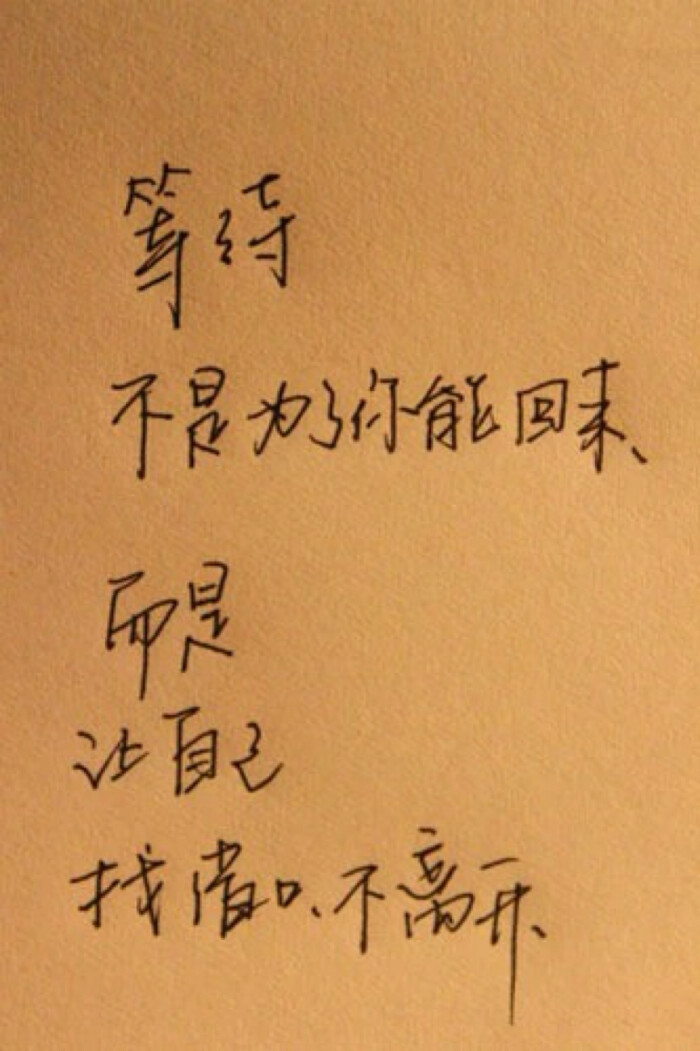 等待
不是为了你能回来、
而是
让自己
找借口、不离开、